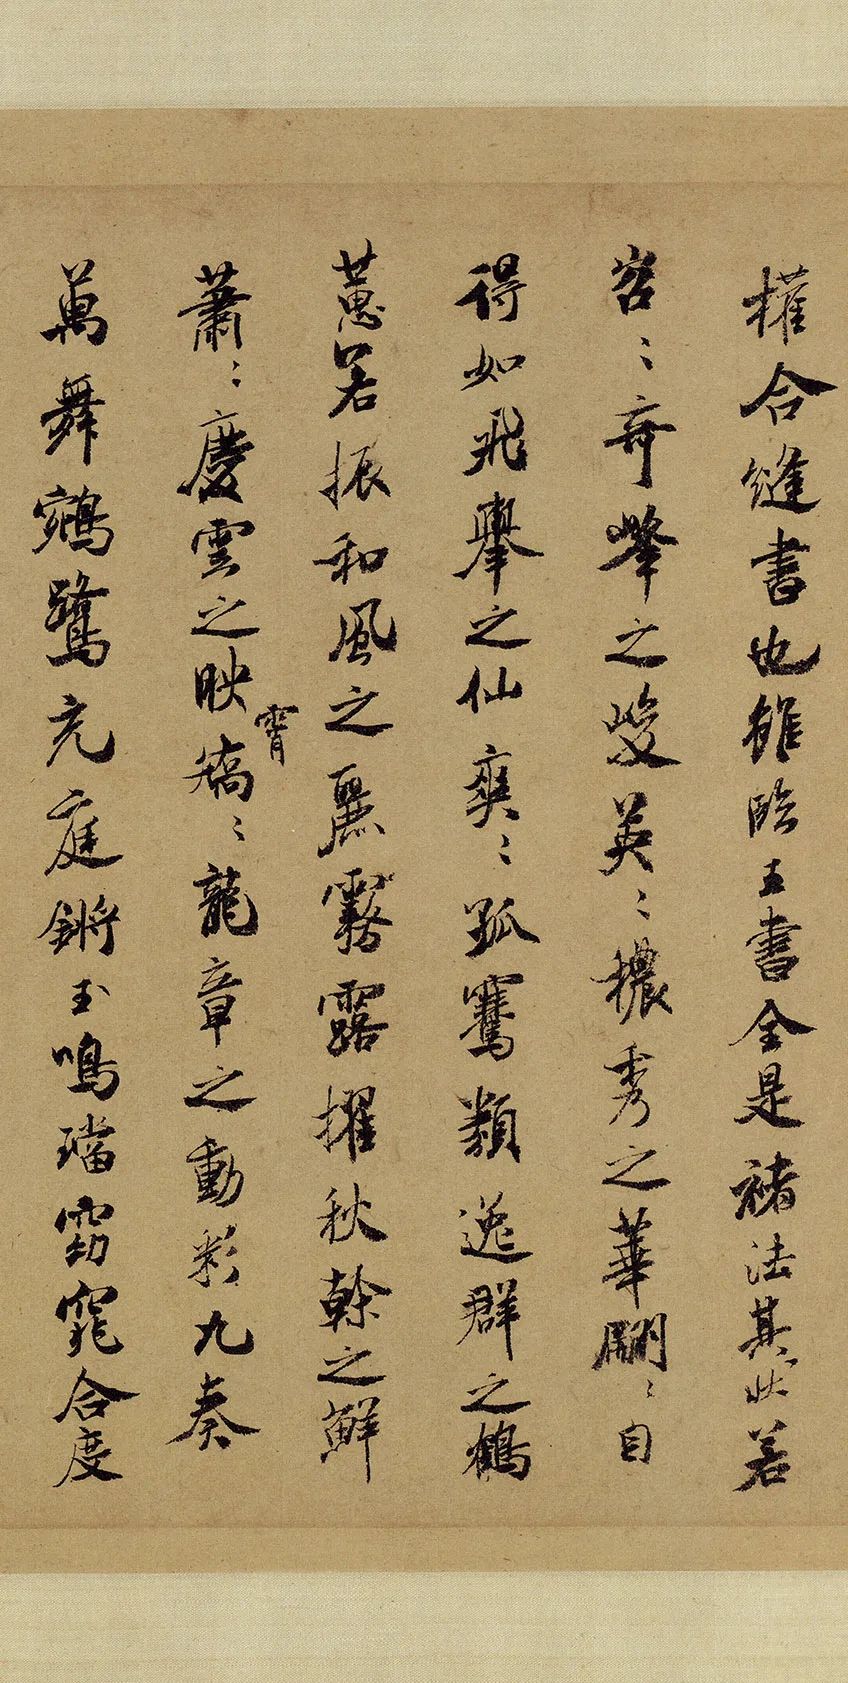 權合縫書也雖臨王書全是褚法其狀若
岩〻奇峯之峻英〻穠秀之華翩〻自
得如飛舉之仙爽〻孤騫類逸群之鶴
蕙若振和風之麗霧露擢秋幹之鮮
蕭〻慶雲之映霄矯〻龍章之動彩九奏
萬舞鵷鷺充庭鏘玉鳴璫窈窕合度